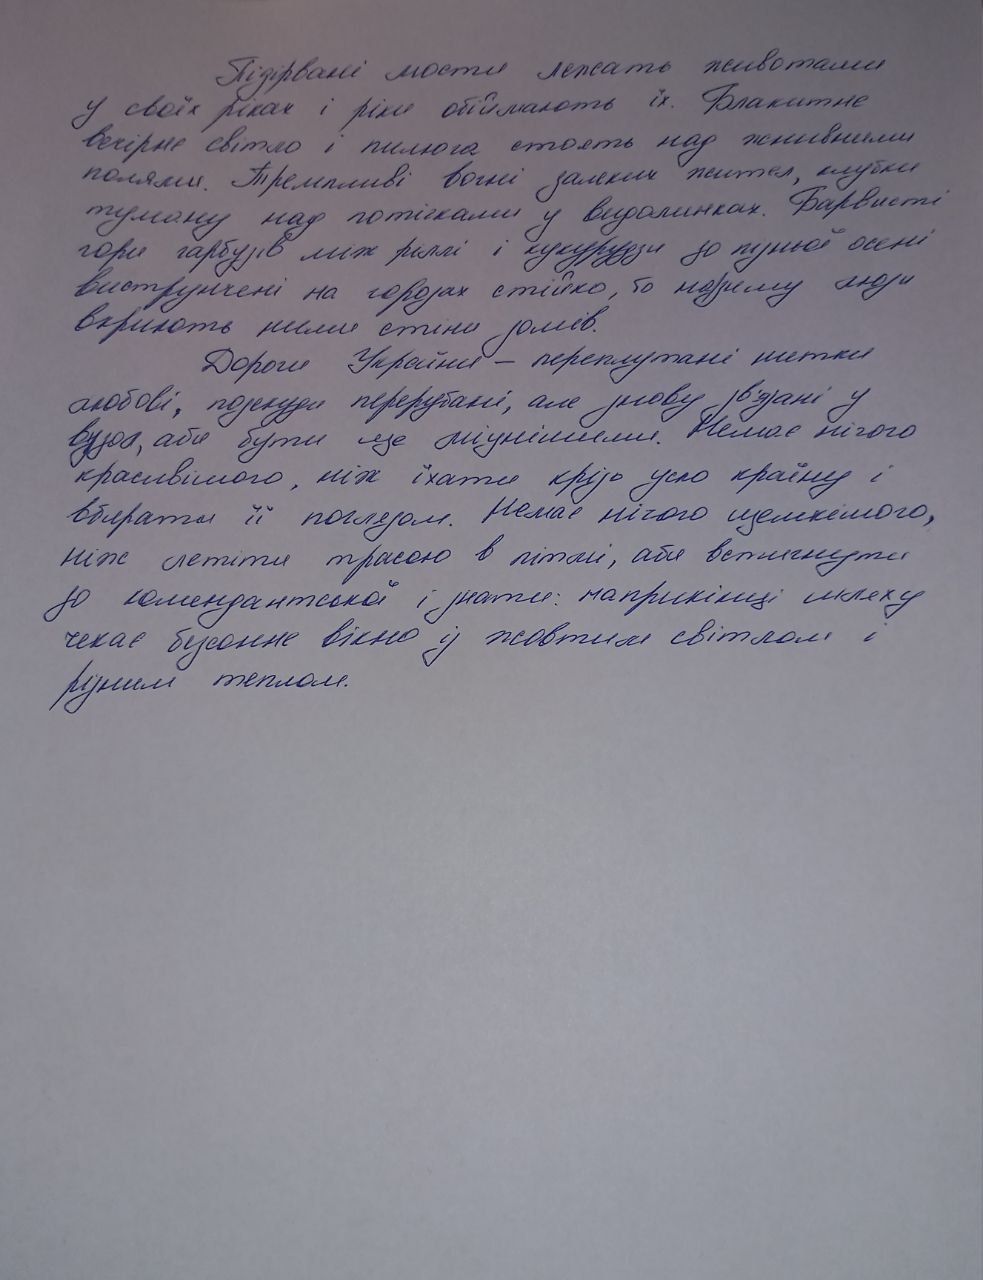 Підірвані мости лежать животами
у своїх ріках і ріки обіймають їх. Блакитне
вечірнє світло і пилюга стоять над жнивними
полями. Тремтливі вогні далеких жител, клубки
туману над потічками у видолинках. Барвисті
гори гарбузів між ріллі і кукурудзи до пізньої осені
вистрілчені на городах стійко, бо надзиму люди
вкриють ними стіни домів.
Дороги України – переплутані нитки
любові, подекуди перерубані, але знову зв'язані у
вузол, аби бути ще міцнішими. Немає нічого
красивішого, ніж їхати крізь усю країну і
вбирати її поглядом. Немає нічого щемкішого,
ніж летіти трасою в пітьмі, аби встигнути
до комендантської і знати: наприкінці шляху
чекає безсонне вікно із жовтим світлом і
рідним теплом.